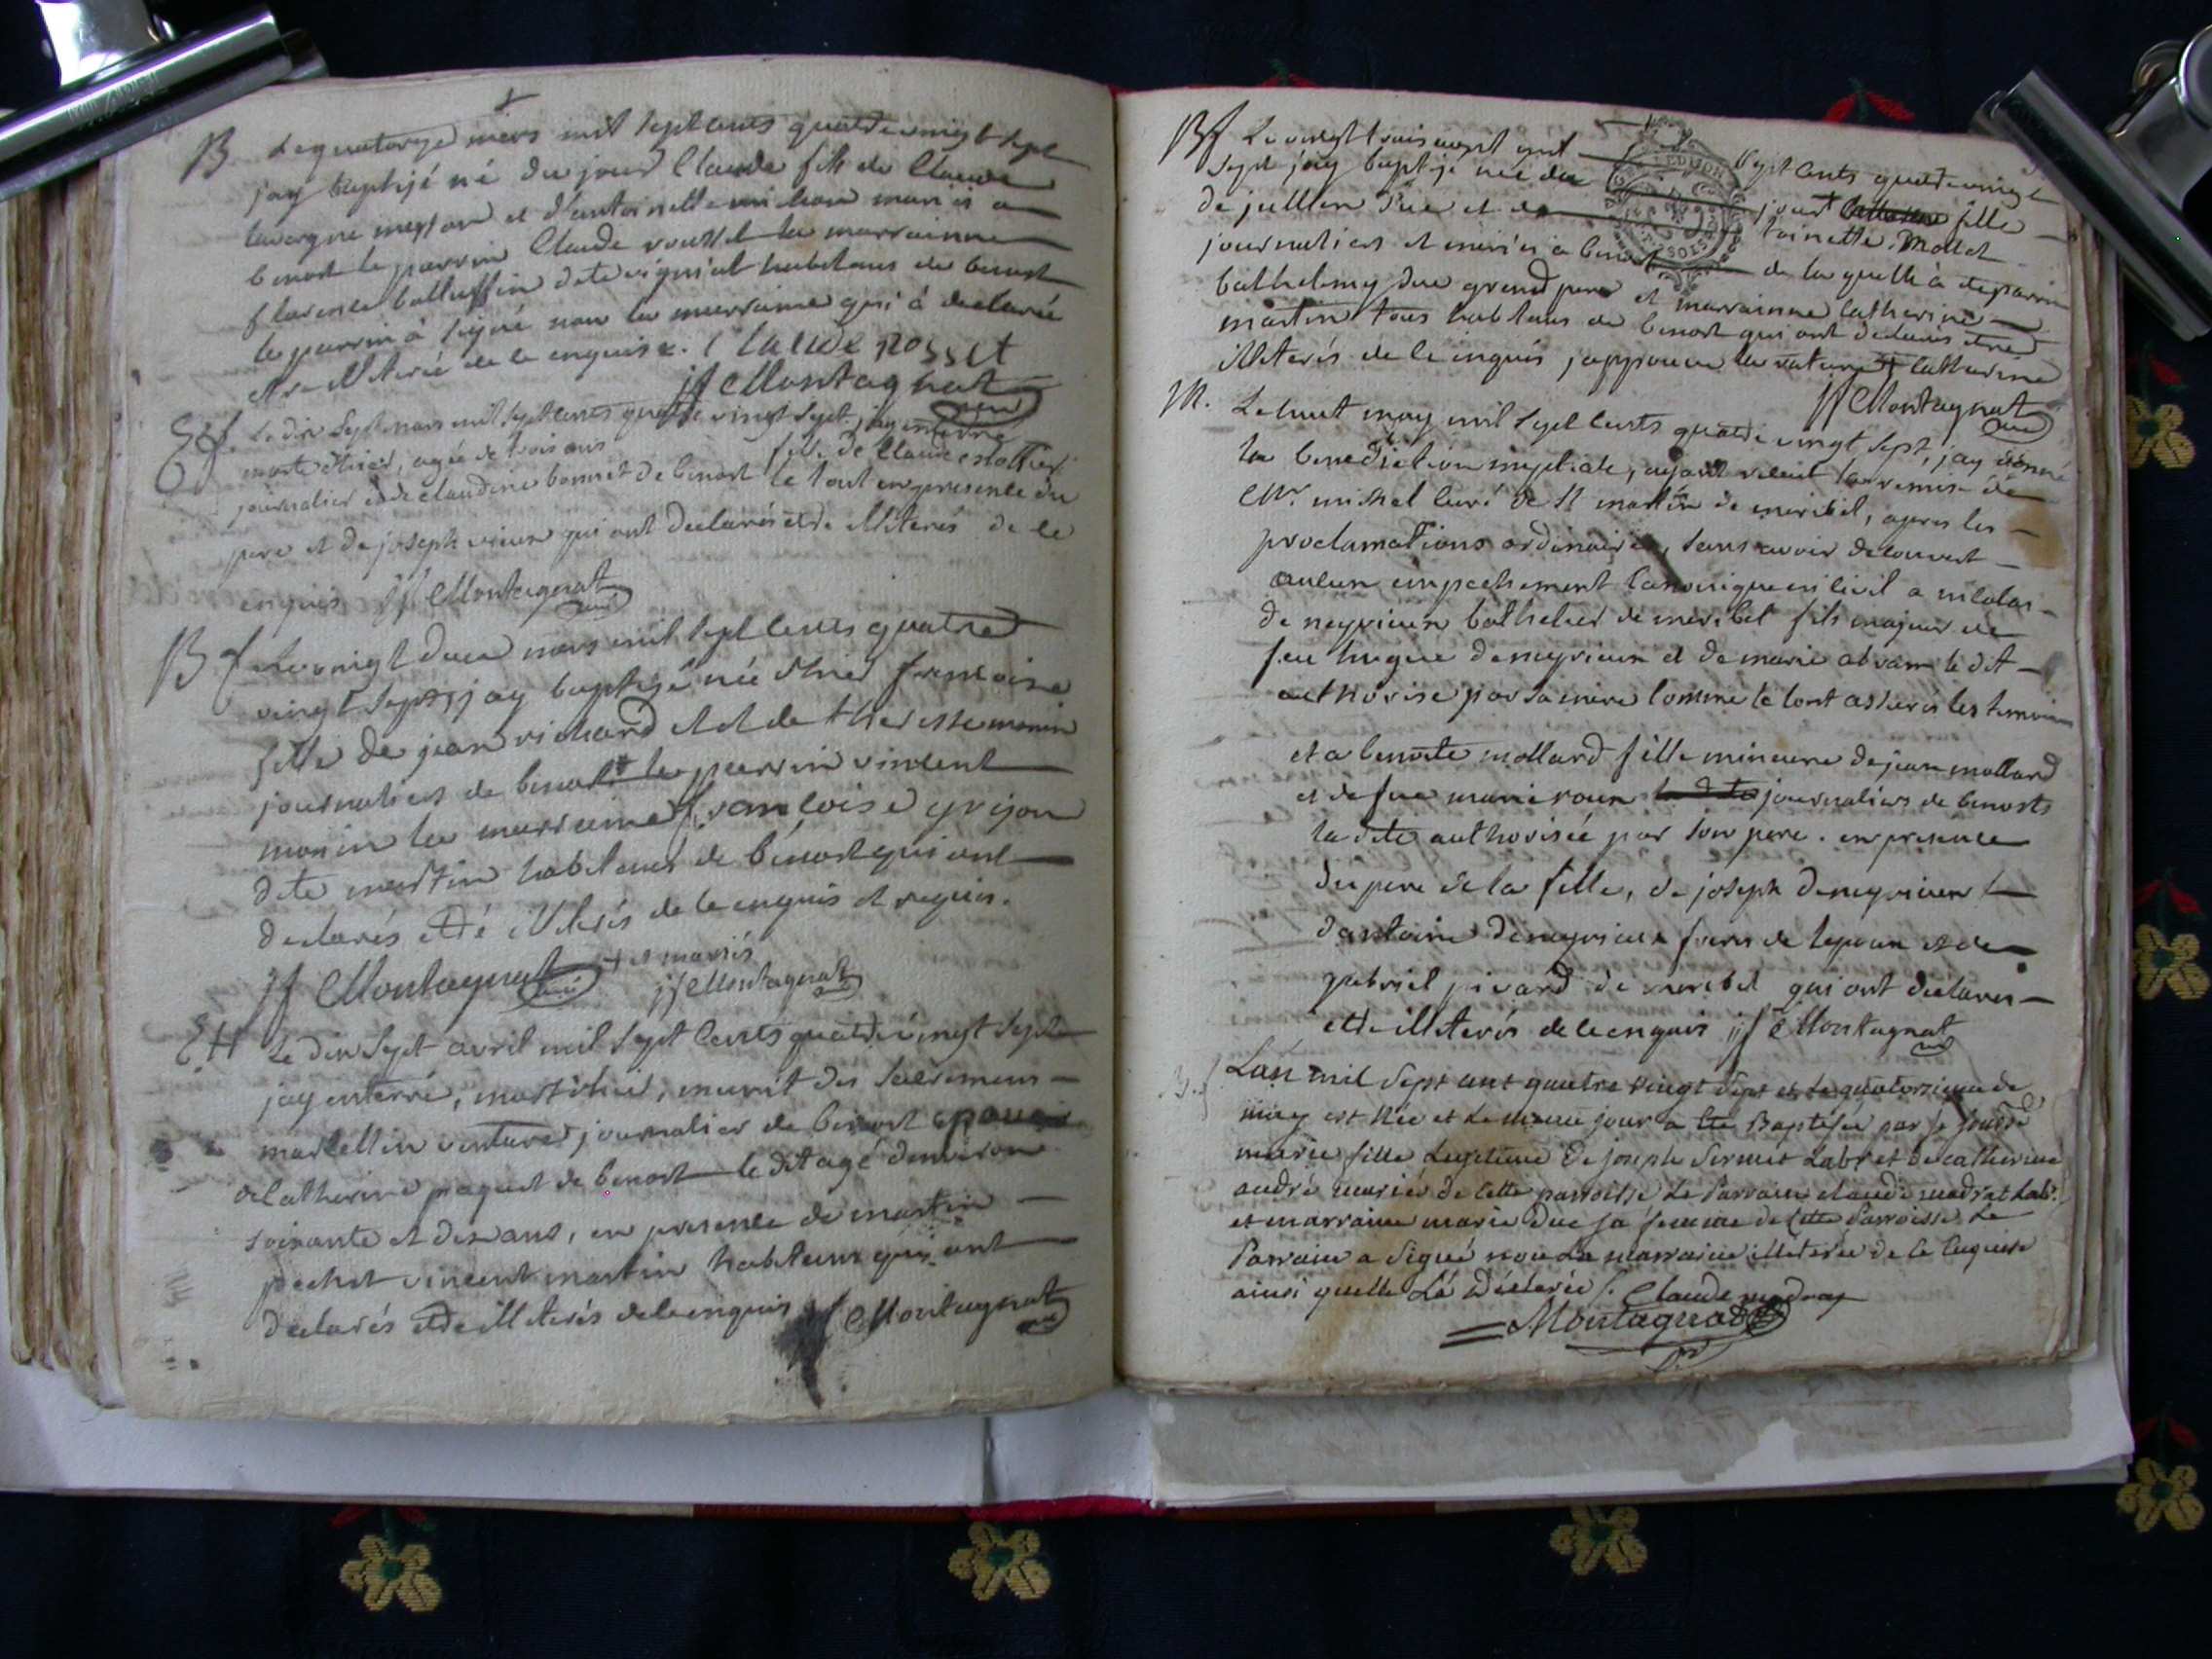 B Le quatorze mars mil sept cents quatre vingt sept
jay baptizé né du jour Claude fils de Claude
lavergne et d'antoinette mariés a
benost le parrin Claude rousset la marrainne
florence habitans de benost
le parrin à signé non la marrainne qui à declaré
etre illiterée de ce enquise. Claude rosset
jf Montagnat curé
Ef. Le dix sept mars mil sept cents quatre vingt sept jay enterré
morte d'hier, agée de trois ans fille de Claude
journalier et de claudine bonnet de benost le tout en presence du
pere et de joseph qui ont declarés etre illiterés de ce
enquis jf Montagnat curé
Bf Le vingt deux mars mil sept cents quatre
vingt sept, jay baptizé née d'hier francoise
fille de jean richard et de theresse monin
journaliers de benost + le parrin vincent
monin la marraine francoise grizon
dite martin habitans de benost qui ont
declarés etre illiterés de ce enquis et requis.
jf Montagnat curé + et mariés
jf Montagnat curé
EH Le dix sept avril mil sept cents quatre vingt sept
jay enterré, mort d'hier, munit des sacremens
marcellin journalier de benost epoux
de Catherine paquet de benost le dit agé d'environ
soixante et dix ans, en presence de martin
pechet vincent martin habitans qui ont
declarés etre illiterés de ce enquis jf Montagnat curé
Bf Le vingt trois avril mil sept cents quatre vingt
sept jay baptizé née du jour + fille
de jullien Duc et de toinette Mollet
journaliers et mariés a benost de laquelle à été parrin
bathelemy Duc grand pere et marrainne catherine
martin tous habitans de benost qui ont declarés etre
illiterés de ce enquis japprouve la rature + catherine
jf Montagnat curé
M. Le huit may mil sept cents quatre vingt sept, jay donné
la benediction nuptiale, ayant receut la remise de
Mr. michel curé de st martin de miribel, apres les
proclamations ordinaires, sans avoir decouvert
aucun empechement canonique ni civil a nicolas
de neyrieux bathelier de miribel fils majeur de
feu hugue deneyrieux et de marie le dit
authorise par sa mere comme le sont asserés les temoins
et a benoite mollard fille mineure de jean mollard
et de feue marie roux journaliers de benost
la dite authorisée par son pere. en presence
du pere de la fille, de joseph deneyrieux
d'antoine deneyrieux freres de lepoux et de
gabriel pivard de meribel qui ont declarés
etre illiterés de ce enquis jf Montagnat curé
Lan mil sept cent quatre vingt sept et le quatorzieme de
may est née et le meme jour a été Baptisée par je soussé
marie fille Legitime de joseph Labr et de catherine
andré mariés de cette parroisse Le Parrain claude modrat Labr.
et marraine marie Duc sa femme de cette Parroisse Le
Parrain a signé non La marraine illeterée de ce Enquise
ainsi quelle La Déclarée /. Claude modray
Montagnat